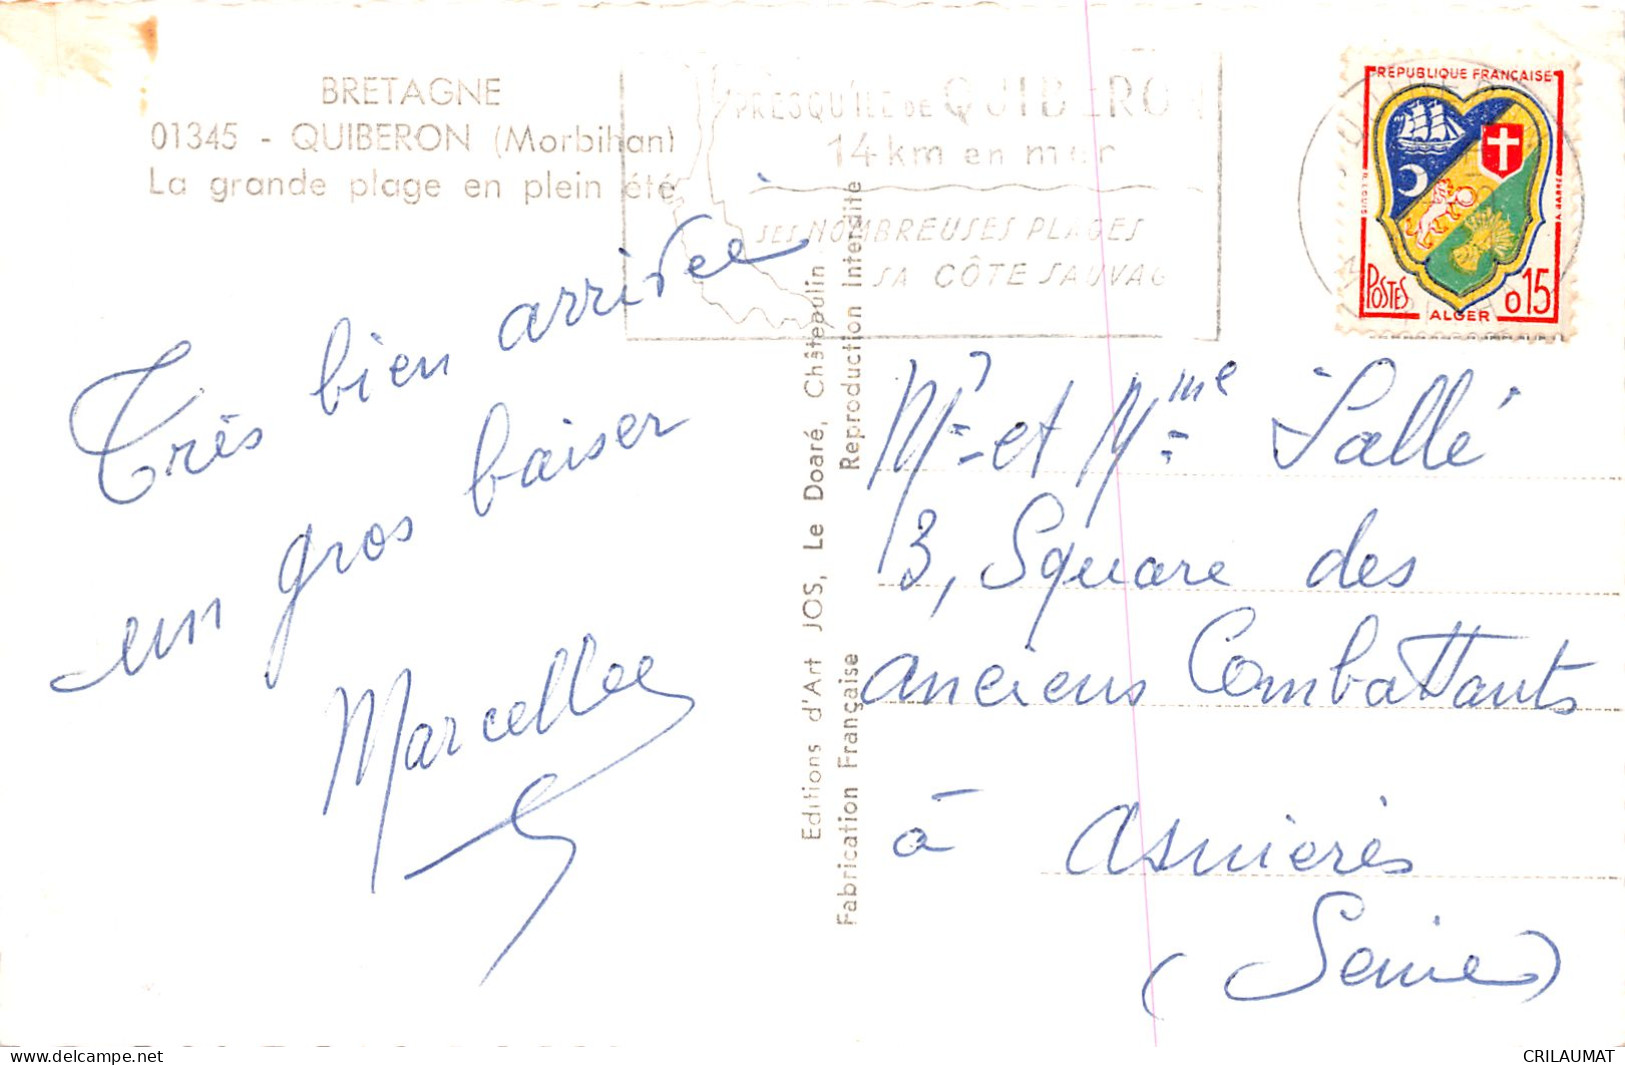 BRETAGNE
01345 - QUIBERON (Morbihan)
La grande plage en plein été
PRESQU'ILE DE QUIBERON
14 km en mer
SES NOMBREUSES PLAGES
SA CÔTE SAUVAG
REPUBLIQUE FRANÇAISE
POSTES
ALGER
0,15
Très bien arrivée
un gros baiser
Marcelle
Editions d'Art JOS, Le Doaré, Châteaulin
Fabrication Française
Reproduction Interdite
Mr et Mme Sallé
3, Square des
anciens Combattants
à Asnières
(Seine)
www.delcampe.net
CRILAUMAT